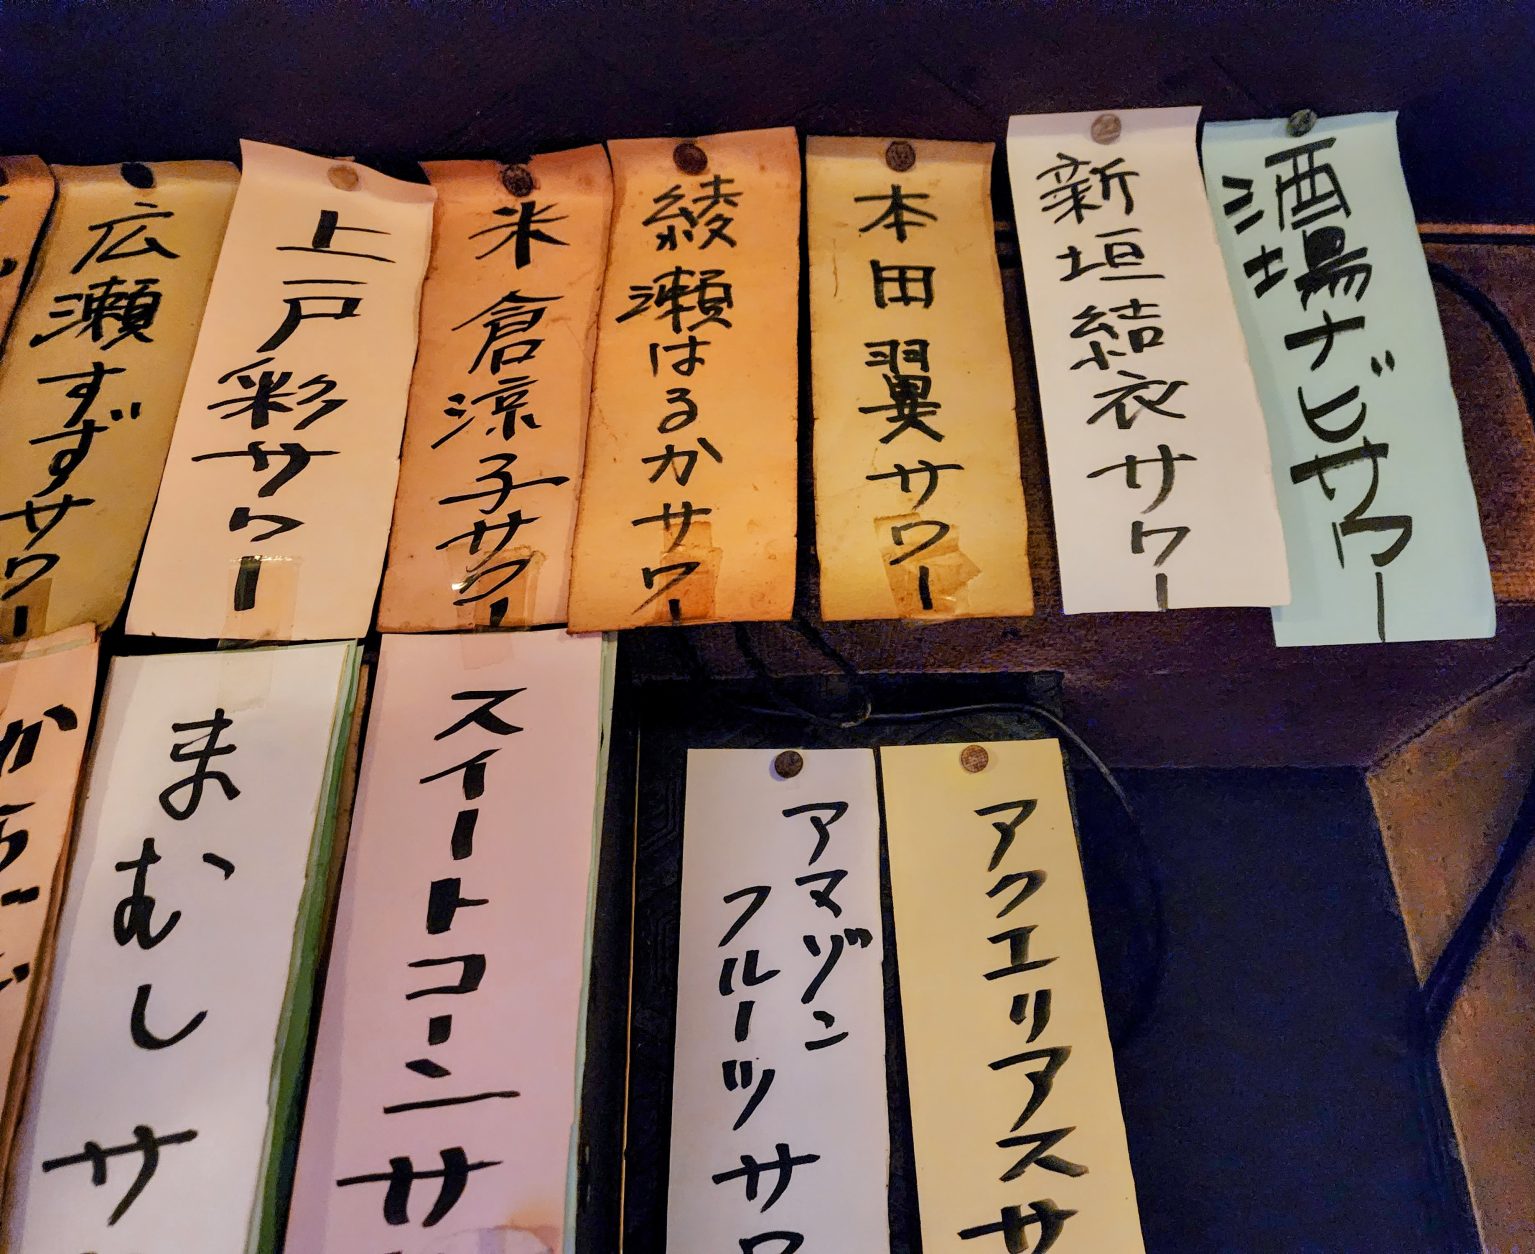 酒場ナビサワー
新垣結衣サワー
本田翼サワー
綾瀬はるかサワー
米倉涼子サワー
上戸彩サワー
広瀬すずサワー
アクエリアスサ
アマゾン
フルーツサワ
スイートコーンサ
まむしサ